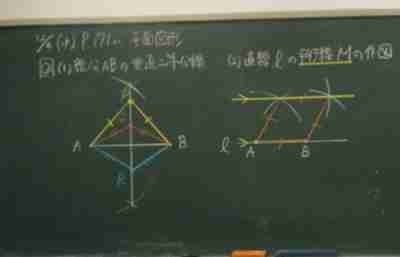 P171〜 平面図形
図(1)線分ABの垂直二等分線
(2)直線ℓの平行線Mの作図
A
B
ℓ
A
B